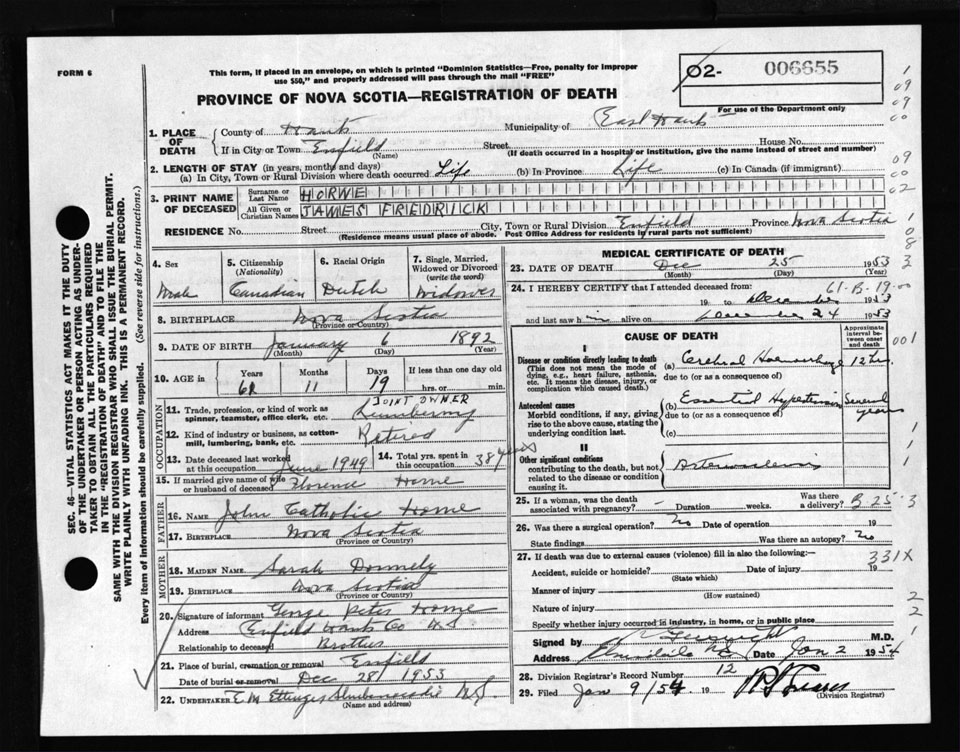 FORM 6
This form, if placed in an envelope, on which is printed "Dominion Statistics—Free, penalty for improper
use $50," and properly addressed will pass through the mail "FREE"
02- 006655
For use of the Department only
PROVINCE OF NOVA SCOTIA—REGISTRATION OF DEATH
1. PLACE OF DEATH
County of Hants Municipality of East Hants
If in City or Town Enfield (Name) Street House No.
(If death occurred in a hospital or institution, give the name instead of street and number)
2. LENGTH OF STAY (in years, months and days)
(a) In City, Town or Rural Division where death occurred Life (b) In Province Life (c) In Canada (if immigrant)
3. PRINT NAME OF DECEASED
Surname or Last Name HORNE
All Given or Christian Names JAMES FREDRICK
RESIDENCE No. Street City, Town or Rural Division Enfield Province Nova Scotia
(Residence means usual place of abode. Post Office Address for residents in rural parts not sufficient)
4. Sex Male
5. Citizenship (Nationality) Canadian
6. Racial Origin Dutch
7. Single, Married, Widowed or Divorced (write the word) Widower
8. BIRTHPLACE Nova Scotia
(Province or Country)
9. DATE OF BIRTH January 6 1892
(Month) (Day) (Year)
10. AGE in Years 61 Months 11 Days 19 If less than one day old hrs. or min.
OCCUPATION
11. Trade, profession, or kind of work as spinner, teamster, office clerk, etc. JOINT OWNER Lumbering
12. Kind of industry or business, as cotton-mill, lumbering, bank, etc. Retired
13. Date deceased last worked at this occupation June 1949
14. Total yrs. spent in this occupation 38 years
15. If married give name of wife or husband of deceased Florence Horne
FATHER
16. NAME John Catholic Horne
17. BIRTHPLACE Nova Scotia
(Province or Country)
MOTHER
18. MAIDEN NAME Sarah Donnely
19. BIRTHPLACE Nova Scotia
(Province or Country)
20. Signature of informant George Peter Horne
Address Enfield Hants Co N S
Relationship to deceased Brother
21. Place of burial, cremation or removal Enfield
Date of burial or removal Dec 28 1953
22. UNDERTAKER E M Ettinger Shubenacadie N.S.
(Name and address)
MEDICAL CERTIFICATE OF DEATH
23. DATE OF DEATH Dec 25 1953
(Month) (Day) (Year)
24. I HEREBY CERTIFY that I attended deceased from: 61-B-19-00
19 to December 1953
and last saw him alive on December 24 1953
CAUSE OF DEATH
Approximate interval between onset and death
I
Disease or condition directly leading to death
(This does not mean the mode of dying, e.g., heart failure, asthenia, etc. It means the disease, injury, or complication which caused death.)
(a) Cerebral Haemorrhage 12 hrs.
due to (or as a consequence of)
Antecedent causes
Morbid conditions, if any, giving rise to the above cause, stating the underlying condition last.
(b) Essential Hypertension Several years
due to (or as a consequence of)
(c)
II
Other significant conditions
contributing to the death, but not related to the disease or condition causing it.
Arteriosclerosis
25. If a woman, was the death associated with pregnancy? - Duration weeks. Was there a delivery? B 25-3
26. Was there a surgical operation? No Date of operation 19
State findings Was there an autopsy? No
27. If death was due to external causes (violence) fill in also the following:— 331X
Accident, suicide or homicide? Date of injury 19
(State which)
Manner of injury
(How sustained)
Nature of injury
Specify whether injury occurred in industry, in home, or in public place
Signed by M.D.
Address NS Date Jan 2 1954
28. Division Registrar's Record Number 12
29. Filed Jan 9/54 19
(Division Registrar)
SEC. 46—VITAL STATISTICS ACT MAKES IT THE DUTY
OF THE UNDERTAKER OR PERSON ACTING AS UNDER-
TAKER TO OBTAIN ALL THE PARTICULARS REQUIRED
IN THE "REGISTRATION OF DEATH" AND TO FILE THE
SAME WITH THE DIVISION REGISTRAR WHO SHALL ISSUE THE BURIAL PERMIT.
WRITE PLAINLY WITH UNFADING INK. THIS IS A PERMANENT RECORD.
Every item of information should be carefully supplied. (See reverse side for instructions.)